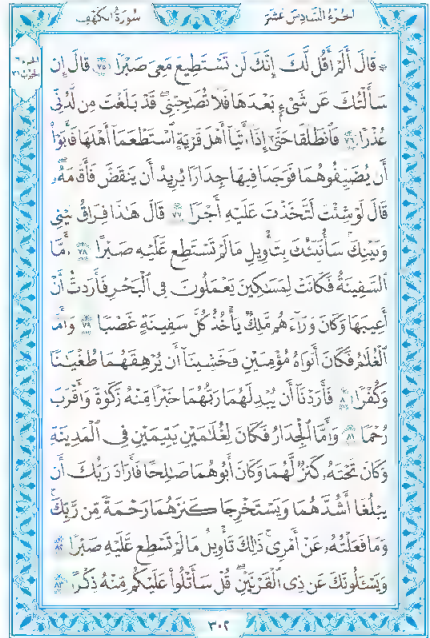 الجزء السادس عشر
سورة الكهف
۞ قَالَ أَلَمْ أَقُل لَّكَ إِنَّكَ لَن تَسْتَطِيعَ مَعِيَ صَبْرًا ٧٥ قَالَ إِن
سَأَلْتُكَ عَن شَيْءٍ بَعْدَهَا فَلَا تُصَٰحِبْنِي ۖ قَدْ بَلَغْتَ مِن لَّدُنِّي
عُذْرًا ٧٦ فَٱنطَلَقَا حَتَّىٰٓ إِذَآ أَتَيَآ أَهْلَ قَرْيَةٍ ٱسْتَطْعَمَآ أَهْلَهَا فَأَبَوْا۟
أَن يُضَيِّفُوهُمَا فَوَجَدَا فِيهَا جِدَارًا يُرِيدُ أَن يَنقَضَّ فَأَقَامَهُۥ
قَالَ لَوْ شِئْتَ لَتَّخَذْتَ عَلَيْهِ أَجْرًا ٧٧ قَالَ هَٰذَا فِرَاقُ بَيْنِي
وَبَيْنِكَ ۚ سَأُنَبِّئُكَ بِتَأْوِيلِ مَا لَمْ تَسْتَطِع عَّلَيْهِ صَبْرًا ٧٨ أَمَّا
ٱلسَّفِينَةُ فَكَانَتْ لِمَسَٰكِينَ يَعْمَلُونَ فِي ٱلْبَحْرِ فَأَرَدتُّ أَنْ
أَعِيبَهَا وَكَانَ وَرَآءَهُم مَّلِكٌ يَأْخُذُ كُلَّ سَفِينَةٍ غَصْبًا ٧٩ وَأَمَّا
ٱلْغُلَٰمُ فَكَانَ أَبَوَاهُ مُؤْمِنَيْنِ فَخَشِينَآ أَن يُرْهِقَهُمَا طُغْيَٰنًا
وَكُفْرًا ٨٠ فَأَرَدْنَآ أَن يُبْدِلَهُمَا رَبُّهُمَا خَيْرًا مِّنْهُ زَكَوٰةً وَأَقْرَبَ
رُحْمًا ٨١ وَأَمَّا ٱلْجِدَارُ فَكَانَ لِغُلَٰمَيْنِ يَتِيمَيْنِ فِي ٱلْمَدِينَةِ
وَكَانَ تَحْتَهُۥ كَنزٌ لَّهُمَا وَكَانَ أَبُوهُمَا صَٰلِحًا فَأَرَادَ رَبُّكَ أَن
يَبْلُغَآ أَشُدَّهُمَا وَيَسْتَخْرِجَا كَنزَهُمَا رَحْمَةً مِّن رَّبِّكَ ۚ
وَمَا فَعَلْتُهُۥ عَنْ أَمْرِي ۚ ذَٰلِكَ تَأْوِيلُ مَا لَمْ تَسْطِع عَّلَيْهِ صَبْرًا ٨٢
وَيَسْـَٔلُونَكَ عَن ذِي ٱلْقَرْنَيْنِ ۖ قُلْ سَأَتْلُوا۟ عَلَيْكُم مِّنْهُ ذِكْرًا ٨٣
٣٠٢